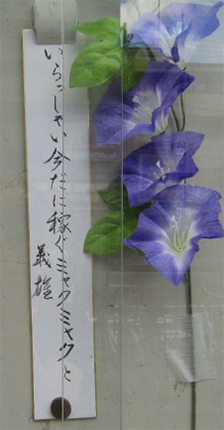 いらっしゃい今だに稼ぐミャクミャクと
義雄